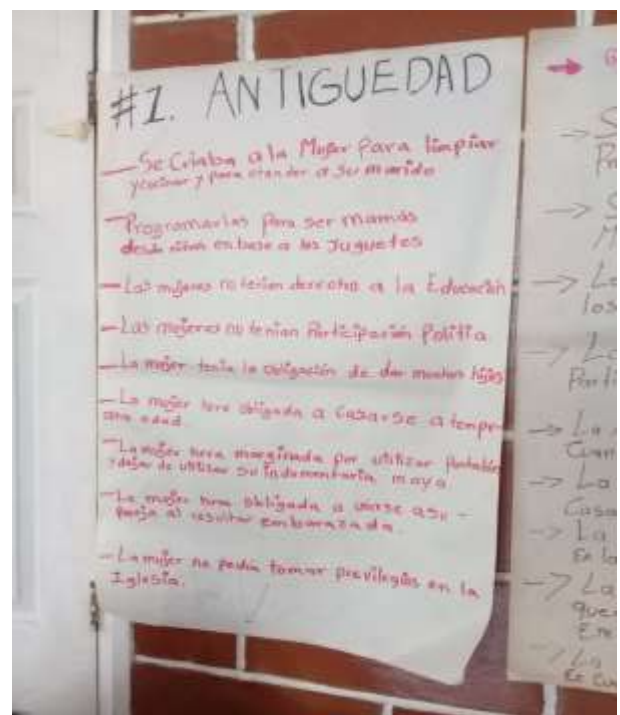 #1. ANTIGUEDAD
— Se Criaba a la Mujer Para limpiar
y cocinar y para atender a su marido
— Programarlas para ser mamás
desde niñas en base a los Juguetes
— Las mujeres no tenían derecho a la Educación
— Las mujeres no tenian Participación Politia
— La mujer tenía la obligación de dar muchos hijos
— La mujer obligada a Casarse a tempr-
ana edad.
— La mujer marginada por utilizar
y dejar de utilizar su indumentaria maya
— La mujer obligada a unirse a su -
pareja al resultar embarazada.
— La mujer no podía tomar previlegios en la
Iglesia.
→
→
→
→ Lo
los
→ La
Parti
→ La
Cuan
→ La
Casa
→ La
En la
→ La
que
En
→ La